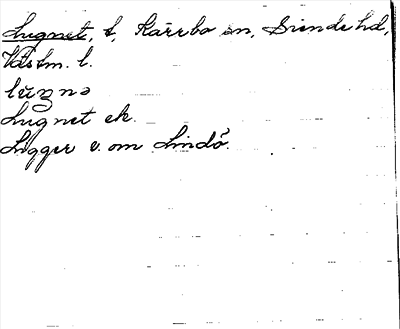 Lugnet, t, Kärrbo sn, Siende hd,
Västm. l.
lúŋnə
Lugnet ek.
Ligger v. om Lindö.